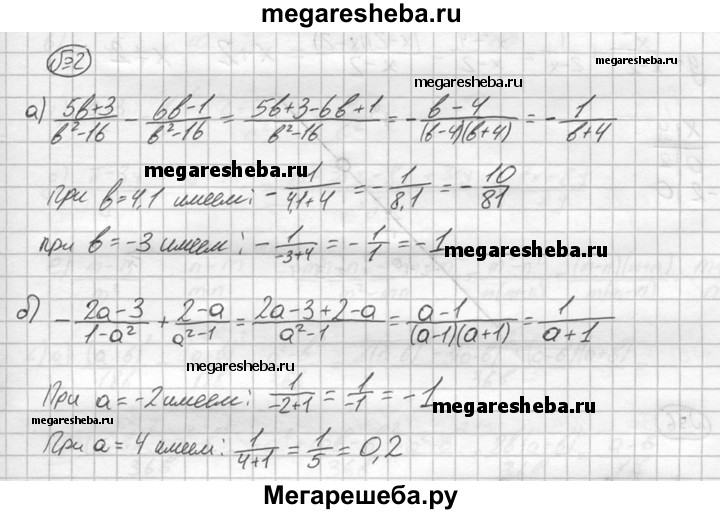 megaresheba.ru
№2
megaresheba.ru
megaresheba.ru
а) (5b+3)/(b²-16) - (6b-1)/(b²-16) = (5b+3-6b+1)/(b²-16) = - (b-4)/((b-4)(b+4)) = - 1/(b+4)
megaresheba.ru
При b=4,1 имеем: - 1/(4,1+4) = - 1/8,1 = - 10/81
при b=-3 имеем: - 1/(-3+4) = - 1/1 = -1
megaresheba.ru
б) - (2a-3)/(1-a²) + (2-a)/(a²-1) = (2a-3+2-a)/(a²-1) = (a-1)/((a-1)(a+1)) = 1/(a+1)
megaresheba.ru
При a=-2 имеем: 1/(-2+1) = 1/(-1) = -1
megaresheba.ru
megaresheba.ru
При a=4 имеем: 1/(4+1) = 1/5 = 0,2
Мегарешеба.ру